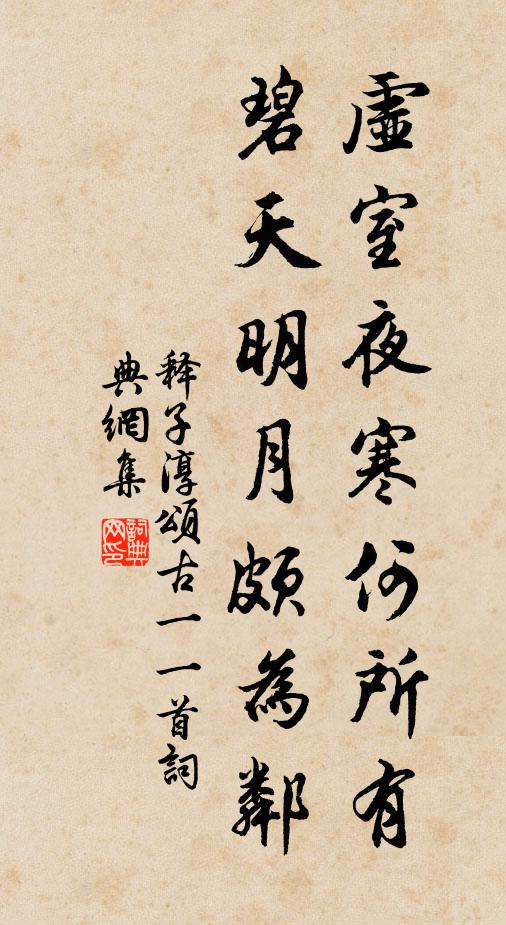 虛室夜寒何所有
碧天明月頗為鄰
释子淳頌古一一首詞
典網集
詞典網印